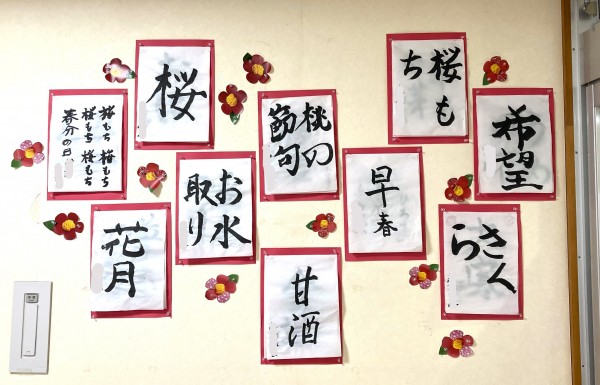 桜もち 桜もち
桜もち 桜もち
春分の日
桜
桃の
節句
桜も
ち
希望
花月
お水
取り
甘酒
早春
さく
ら